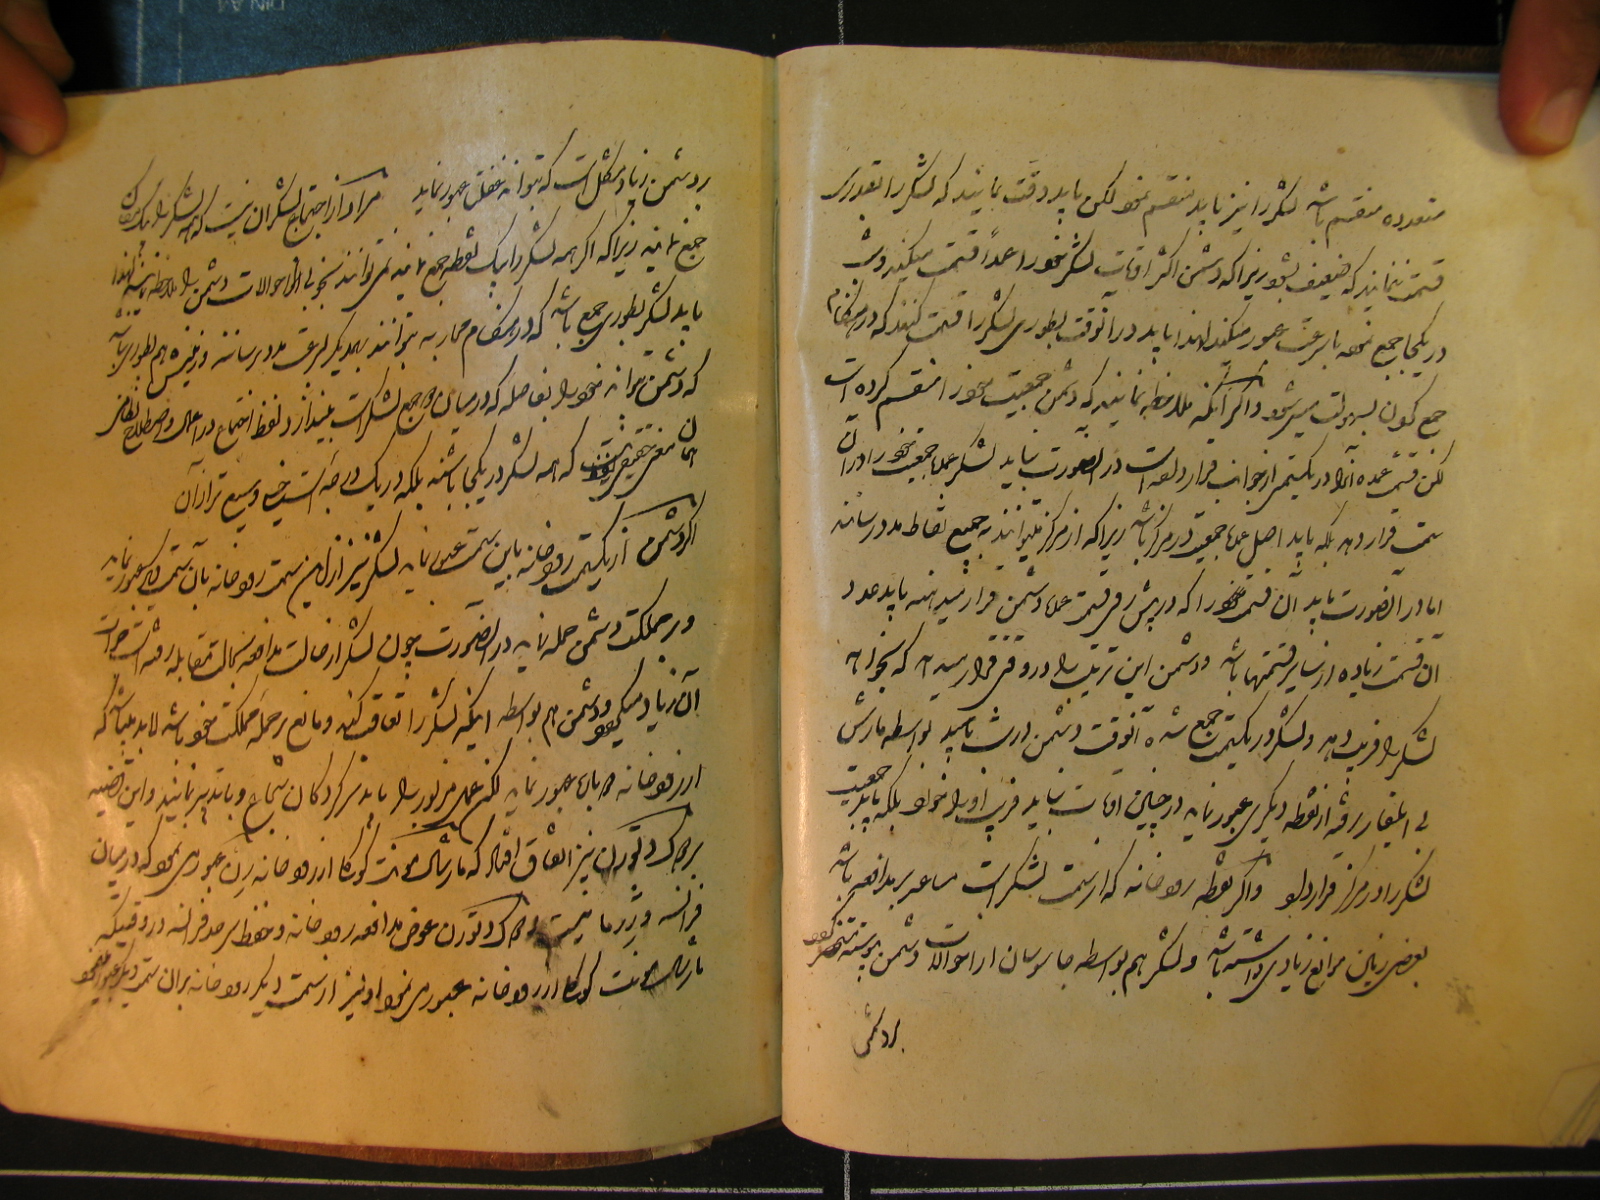 متعدده منقسم باشد لشکر را نیز باید منقسم نمود لکن باید دقت نمایند که لشکر را بقدری
قسمت ننمایند که ضعیف بشود زیرا که دشمن اکثر اوقات لشکر خود را عمداً قسمت میکند و
در یکجا جمع نموده با سرعت عبور میکند لهذا باید در آنوقت بطوری لشکر را قسمت کنند که در هنگام
جمع کردن بسهولت میسر شود و اگر آنکه ملاحظه نمایند که دشمن جمعیت خود را منقسم کرده است
لکن قسمت عمده آنرا در یکسمتی از جوانب قرار داده است در اینصورت نباید لشکر عمده جمعیت خود را در آن
سمت قرار دهد بلکه باید اصل عمده جمعیت در مرکز باشد زیرا که از مرکز میتوانند به جمیع نقاط مدد رسانند
اما در آنصورت باید آن قسمت را که در پیش روی قسمت عمده دشمن قرار میدهند باید عدد
آن قسمت زیاده از سایر قسمتها باشد و دشمن این ترتیب را در وقتی قرار میدهد که بخواهد
لشکر را فریب دهد و لشکر در یکسمت جمع شده آنوقت دشمن در شب باید بواسطه مارش
بی ایلغار برقته از نقطه دیگری عبور نماید در چنین اوقات نباید فریب او را خورد بلکه باید جمعیت
لشکر را در مرکز قرار داد و اگر نقطه رودخانه که از سمت لشکر است مساعد بر مدافعه باشد
یعنی زمین موانع زیادی داشته باشد و لشکر هم بواسطه جاسوسان از احوالات دشمن پیوسته مستحضر شود
بر دشمن
بر دشمن زیاد مشکل است که بتواند غفلتاً عبور نماید مراد از اجتماع لشکر آن نیست که همه لشکر را در یک مکان
جمع نمایند زیرا که اگر همه لشکر را یک نقطه جمع نمایند نمی توانند بخوبی از احوالات دشمن را ملاحظه نمایند لهذا
باید لشکر بطوری جمع باشد که در هنگام محاربه بتوانند بهمدیگر بسرعت مدد برسانند و نیز هم بطوری نباشد
که دشمن بتواند خود را بفاصله که در میان جمع لشکر است بیندازد و لفظ اجتماع در اصطلاح نظامی
همان معنی حقیقی نیست که همه لشکر در یکجا باشند بلکه در یک دایره است وسیع تر از آن
اگر دشمن از یکسمت رودخانه باین سمت عبور نماید لشکر نیز از این سمت رودخانه بآن سمت دیگر عبور نماید
و بر مملکت دشمن حمله نماید در اینصورت چون لشکر از حالت مدافعه بحالت مقابله رفته است جرات
آن زیاد میگردد و دشمن هم بواسطه اینکه لشکر را تعاقب کند و مانع بر حمله مملکت خود باشد لابد میباشد که
از رودخانه عبور نماید لکن عمل مزبور را باید سرکردگان شجاع و با تدبیر نمایند و این قضیه
بر تورن نیز اتفاق افتاد که مارشال مونت کوکلی از رودخانه رن عبوری نمود که در میان
فرانسه و ژرمانیست تورن عوض مدافعه رودخانه و حفظ سرحد فرانسه در وقتیکه
مارشال مونت کوکلی از رودخانه عبوری نمود او نیز از سمت دیگر رودخانه بر آن سمت دیگر عبور نمود